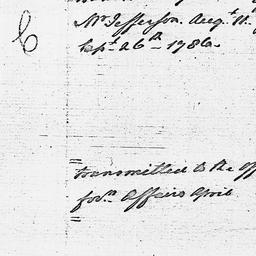 C
Mr. Jefferson. Augt. 11.
Sept. 26th 1786.
transmitted to the off
forn. Affairs April